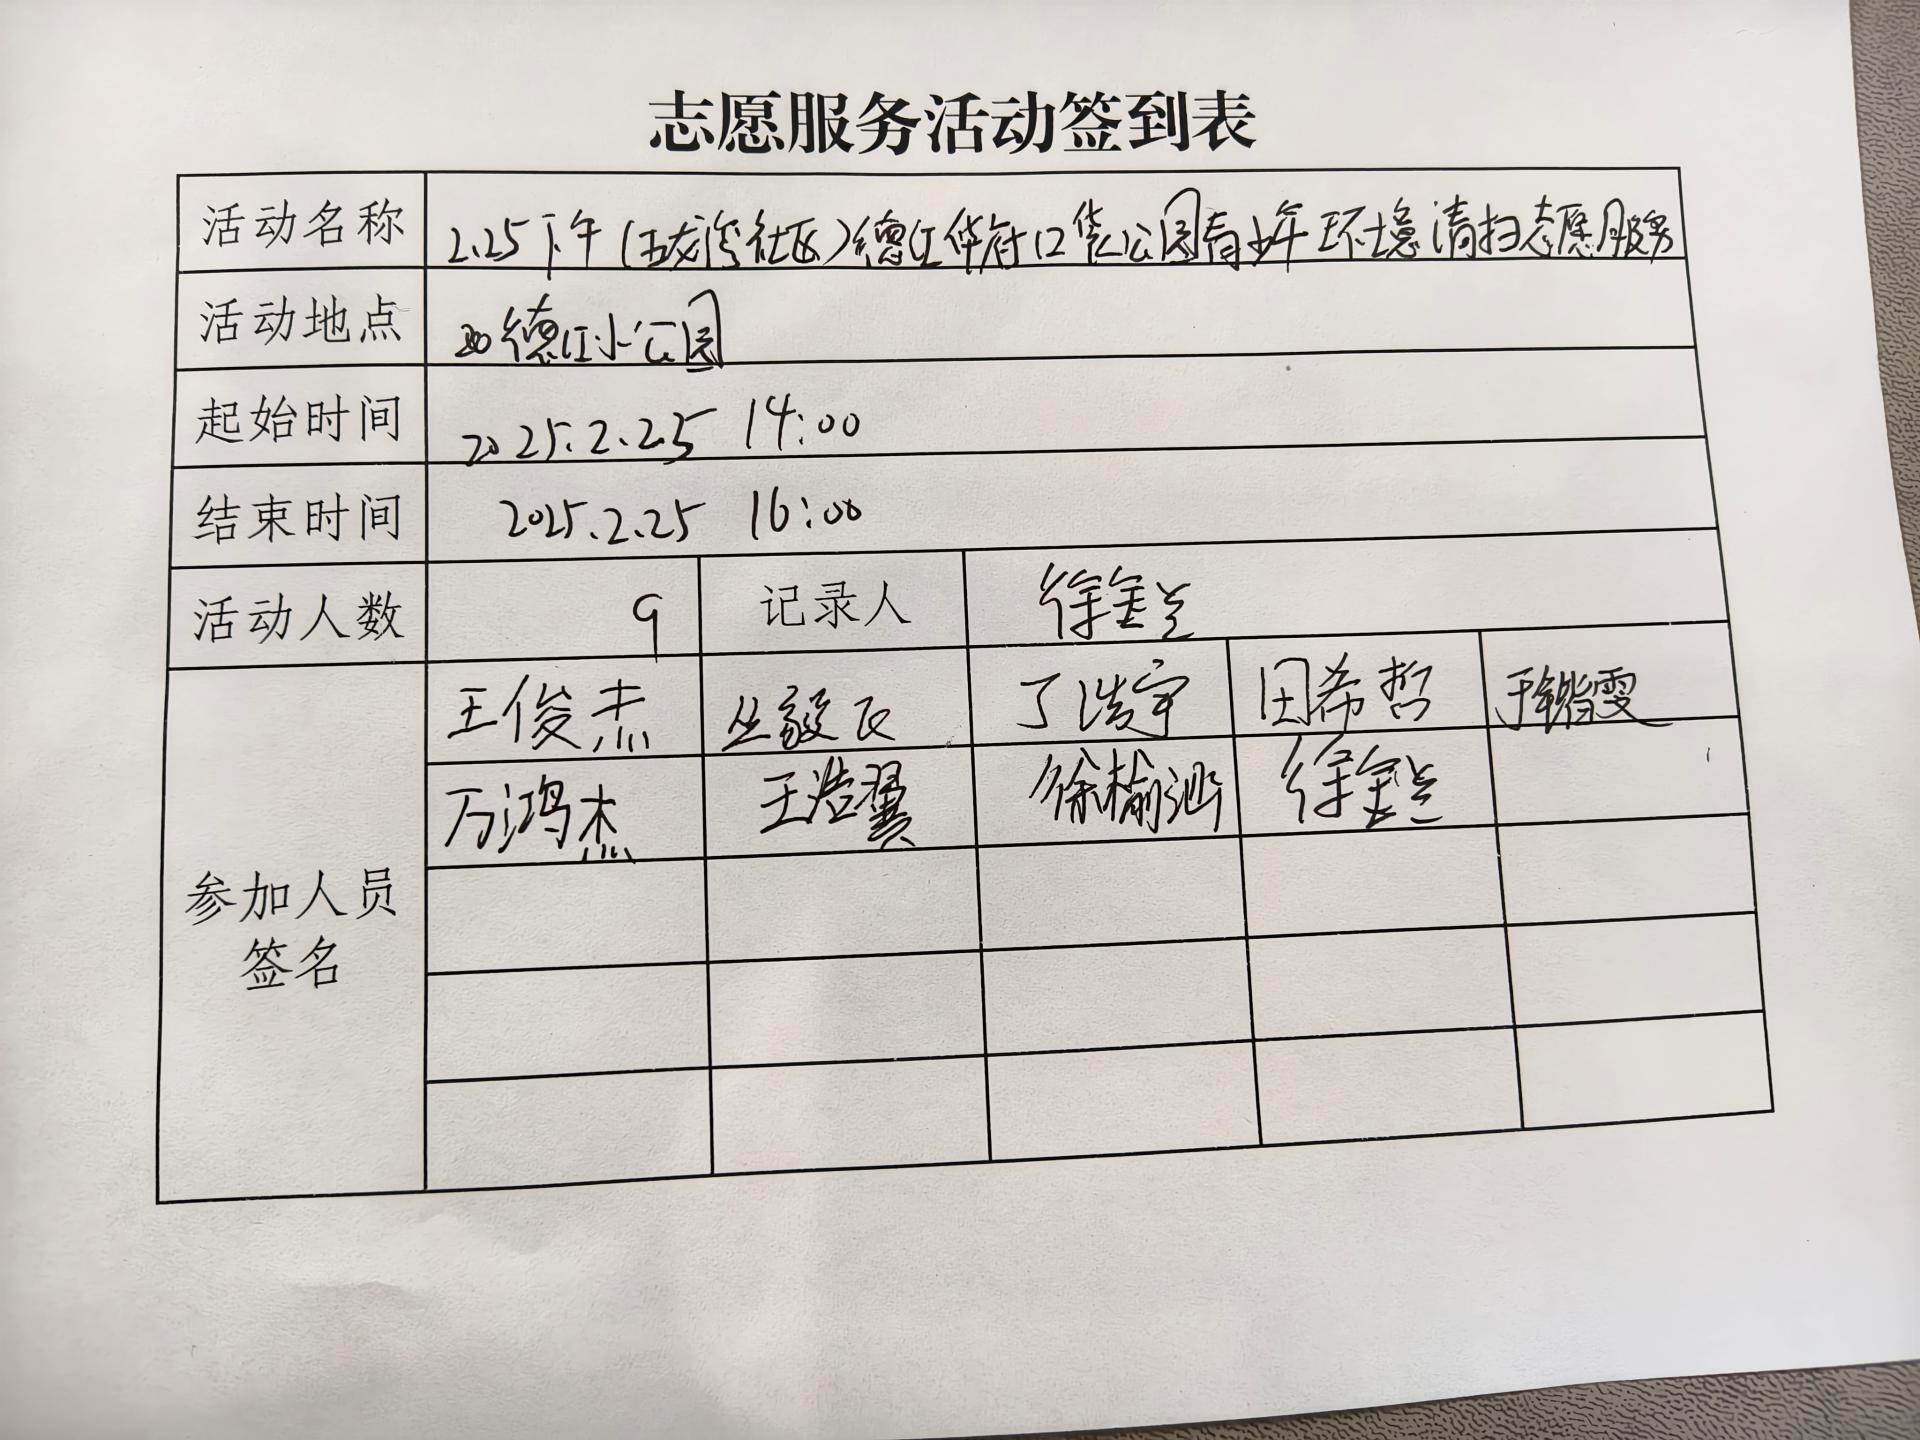 志愿服务活动签到表
活动名称 2.25下午（五龙湾社区）德江华府口袋公园青少年环境清扫志愿服务
活动地点 德江小公园
起始时间 2025.2.25 14:00
结束时间 2025.2.25 16:00
活动人数 9 记录人 徐金兰
参加人员签名
王俊杰 丛毅飞 丁浩宇 田希哲 于锴雯
万鸿杰 王浩翼 徐榆涵 徐金兰